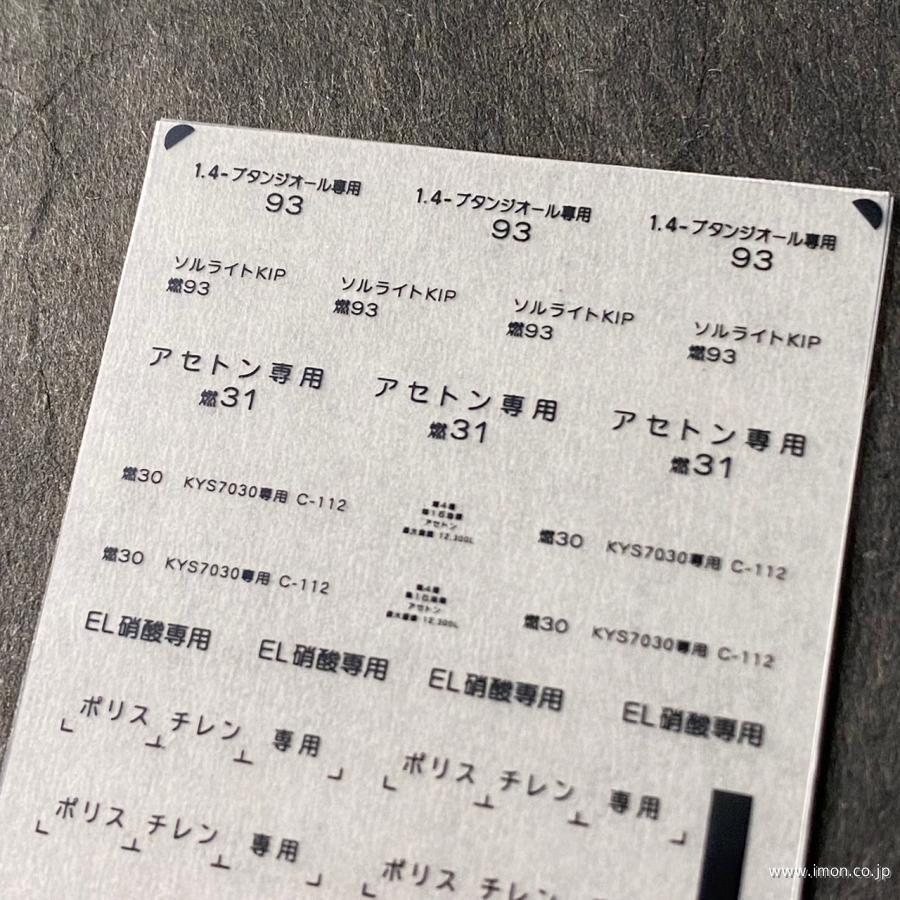 1.4-ブタンジオール専用 1.4-ブタンジオール専用 1.4-ブタンジオール専用
93 93 93
ソルライトKIP ソルライトKIP ソルライトKIP ソルライトKIP
燃93 燃93 燃93 燃93
アセトン専用 アセトン専用 アセトン専用
燃31 燃31 燃31
燃30 KYS7030専用 C-112
アセトン
12,300L
燃30 KYS7030専用 C-112
燃30 KYS7030専用 C-112
アセトン
12,300L
燃30 KYS7030専用 C-112
EL硝酸専用 EL硝酸専用 EL硝酸専用 EL硝酸専用
ポリス チレン 専用 ポリス チレン 専用
ポリス チレン 専用 ポリス チレン
www.imon.co.jp